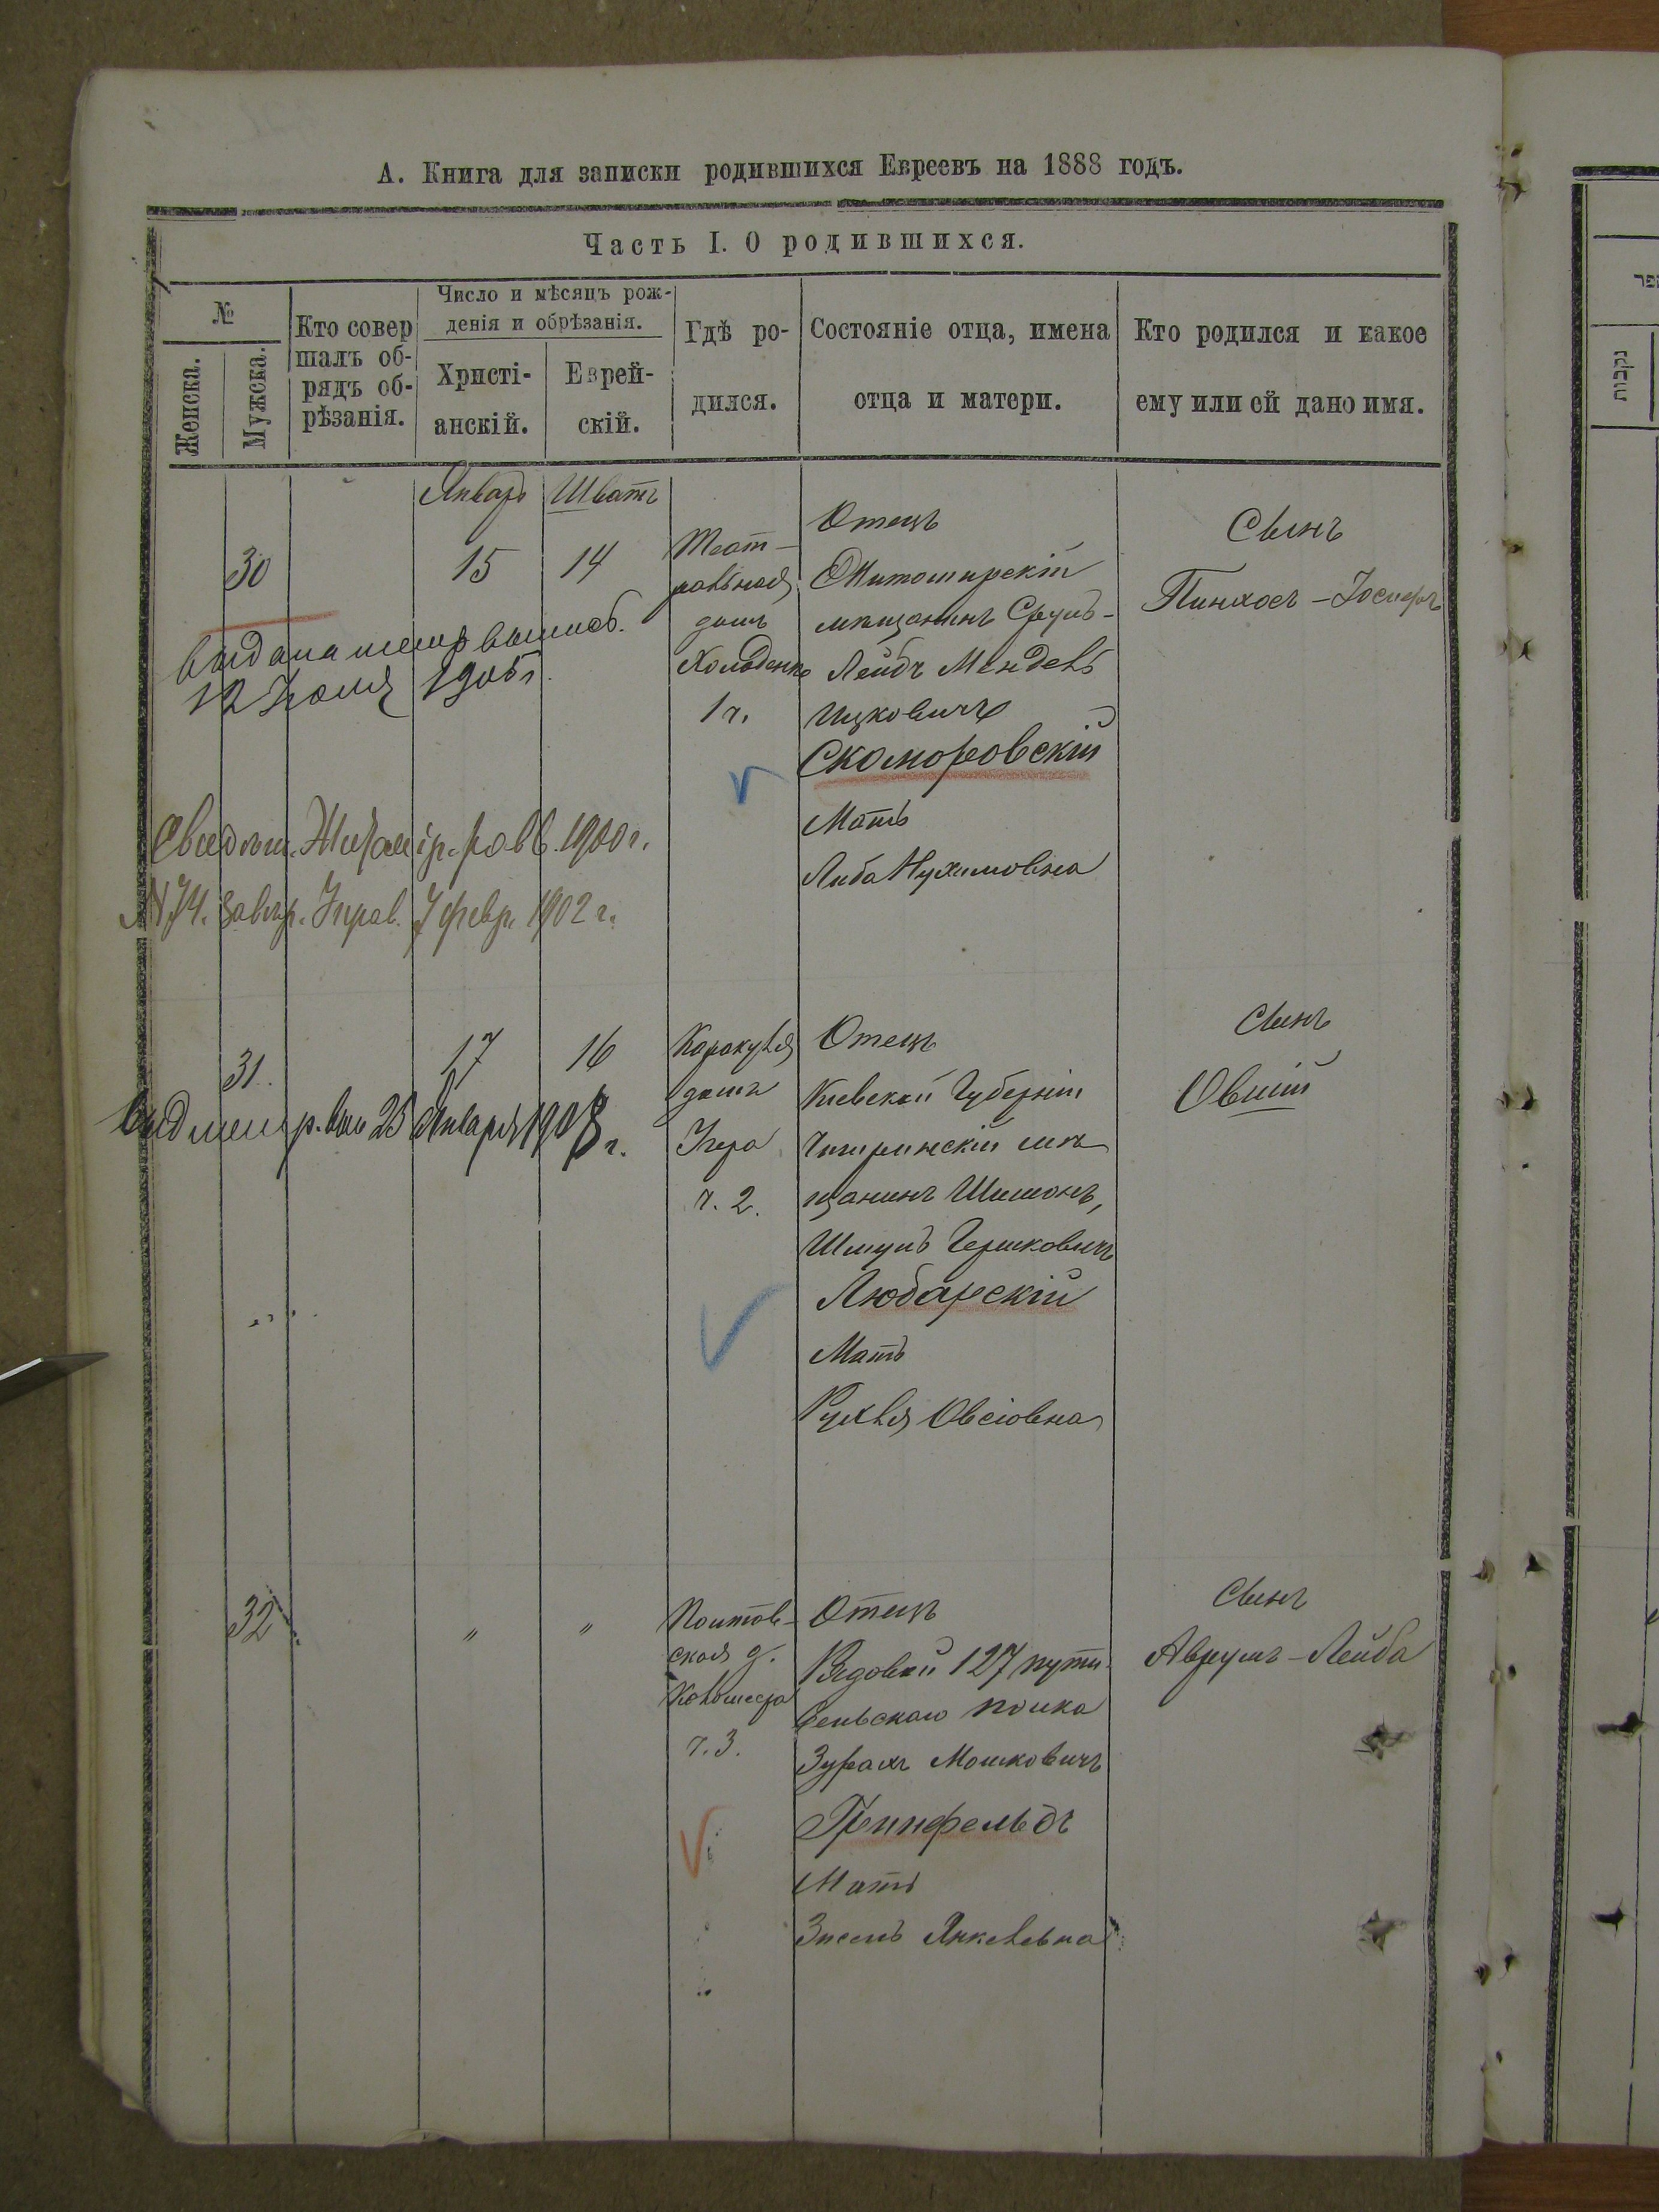 А. Книга для записки родившихся Евреевъ на 1888 годъ.
Часть I. О родившихся.
№
Женска.
Мужска.
Кто совер
шалъ об-
рядъ об-
рѣзанія.
Число и мѣсяцъ рож-
денія и обрѣзанія.
Христі-
анскій.
Еврей-
скій.
Гдѣ ро-
дился.
Состояніе отца, имена
отца и матери.
Кто родился и какое
ему или ей дано имя.
Январь
Шватъ
30
15
14
Театральная
домъ
1 ч.
Отецъ
Житомирскій
мѣщанинъ Сруль-
Лейбъ Мендель
Ицковичъ
Скоморовскій
Мать
Либа Нухимовна
Сынъ
Пинхосъ-Іосифъ
выдана метр выпись.
12 Іюля 1905 г.
Свидѣт. Житомір. равв. 1900 г.
№ 74. Завѣр. Управ. 7 февр. 1902 г.
31.
17
16
домъ
ч. 2.
Отецъ
Кіевской Губерніи
Чигиринскій мѣ
щанинъ Шимонъ,
Шмуль Гершковичъ
Любарскій
Мать
Рухля Овсіовна
Сынъ
Овшій
выд метр. вып 25 Января 1908 г.
32
"
"
Почтов-
ская д.
ч. 3.
Отецъ
Рядовой 127 пути-
вльскаго полка
Зурахъ Мошковичъ
Гринфельдъ
Мать
Зисель Янкелевна
Сынъ
Аврумъ-Лейба
נקבות